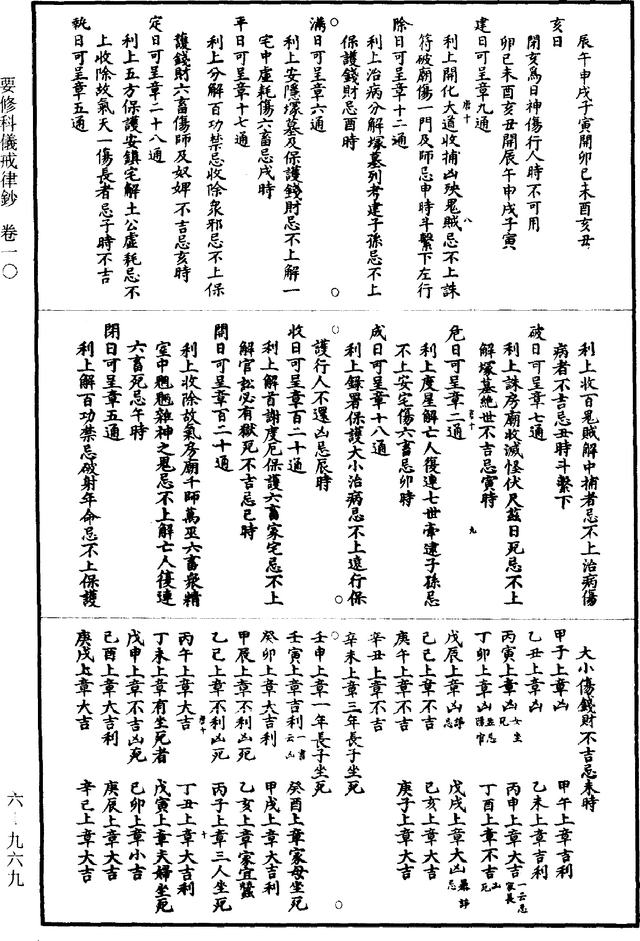 辰午申戌子寅開卯巳未酉亥丑
亥日
閉亥為日神傷行人時不可用
卯巳未酉亥丑開辰午申戌子寅
建日可呈章九通
唐十 八
利上開化大道收捕凶殃鬼賊忌不上誅
符破廟傷一門及師忌申時斗繫下左行
除日可呈章十二通
利上治病分解塚墓列考逮子孫忌不上
保護錢財忌酉時
滿日可呈章六通
利上安隱塚墓及保護錢財忌不上解一
宅中虛耗傷六畜忌戌時
平日可呈章十七通
利上分解百功禁忌收除衆邪忌不上保
護錢財六畜傷師及奴婢不吉忌亥時
定日可呈章二十八通
利上五方保護安鎮宅解土公虛耗忌不
上收除故氣天一傷長者忌子時不吉
執日可呈章五通
利上收百鬼賊解中捕者忌不上治病傷
病者不吉忌丑時斗繫下
破日可呈章七通
利上誅房廟收滅怪伏尺茲日死忌不上
解塚墓絕世不吉忌寅時
危日可呈章二通
唐十 九
利上度星解亡人復連七世牽逮子孫忌
不上安定傷六畜忌卯時
成日可呈章十八通
利上錄署保護大小治病忌不上遠行保
護行人不還凶忌辰時
收日可呈章百二十通
利上解首謝度厄保護六畜家宅忌不上
解官訟必有獄死不吉忌巳時
開日可呈章百二十通
利上收除故氣房廟千師萬巫六畜衆精
室中魍魎雜神之鬼忌不上解亡人復連
六畜死忌午時
閉日可呈章五通
利上解百功禁忌破射年命忌不上保護
大小傷錢財不吉忌未時
甲子上章凶 甲午上章吉利
乙丑上章凶 乙未上章吉利
丙寅上章凶女坐死 丙申上章大吉一云忌家長
丁卯上章凶忌縣官 丁酉上章不吉凶死
戊辰上章凶諍忌 戊戌上章大凶諍忌
己巳上章不吉 己亥上章大吉
庚午上章不吉 庚子上章大吉
辛丑上章不吉
辛未上章三年長子坐死
壬申上章一年長子坐死
壬寅上章吉利一書云凶 癸酉上章家母坐死
癸卯上章大吉利 甲戌上章大吉利
甲辰上章不利凶死 乙亥上章家宜蠶
乙巳上章不利凶死 丙子上章三人坐死
唐十 十
丙午上章大吉 丁丑上章大吉利
丁未上章有坐死者 戊寅上章夫婦坐死
戊申上章不吉凶死 己卯上章小吉
己酉上章大吉利 庚辰上章大吉
庚戌上章大吉 辛巳上章大吉
要修科儀戒律鈔 卷一〇
六—九六九